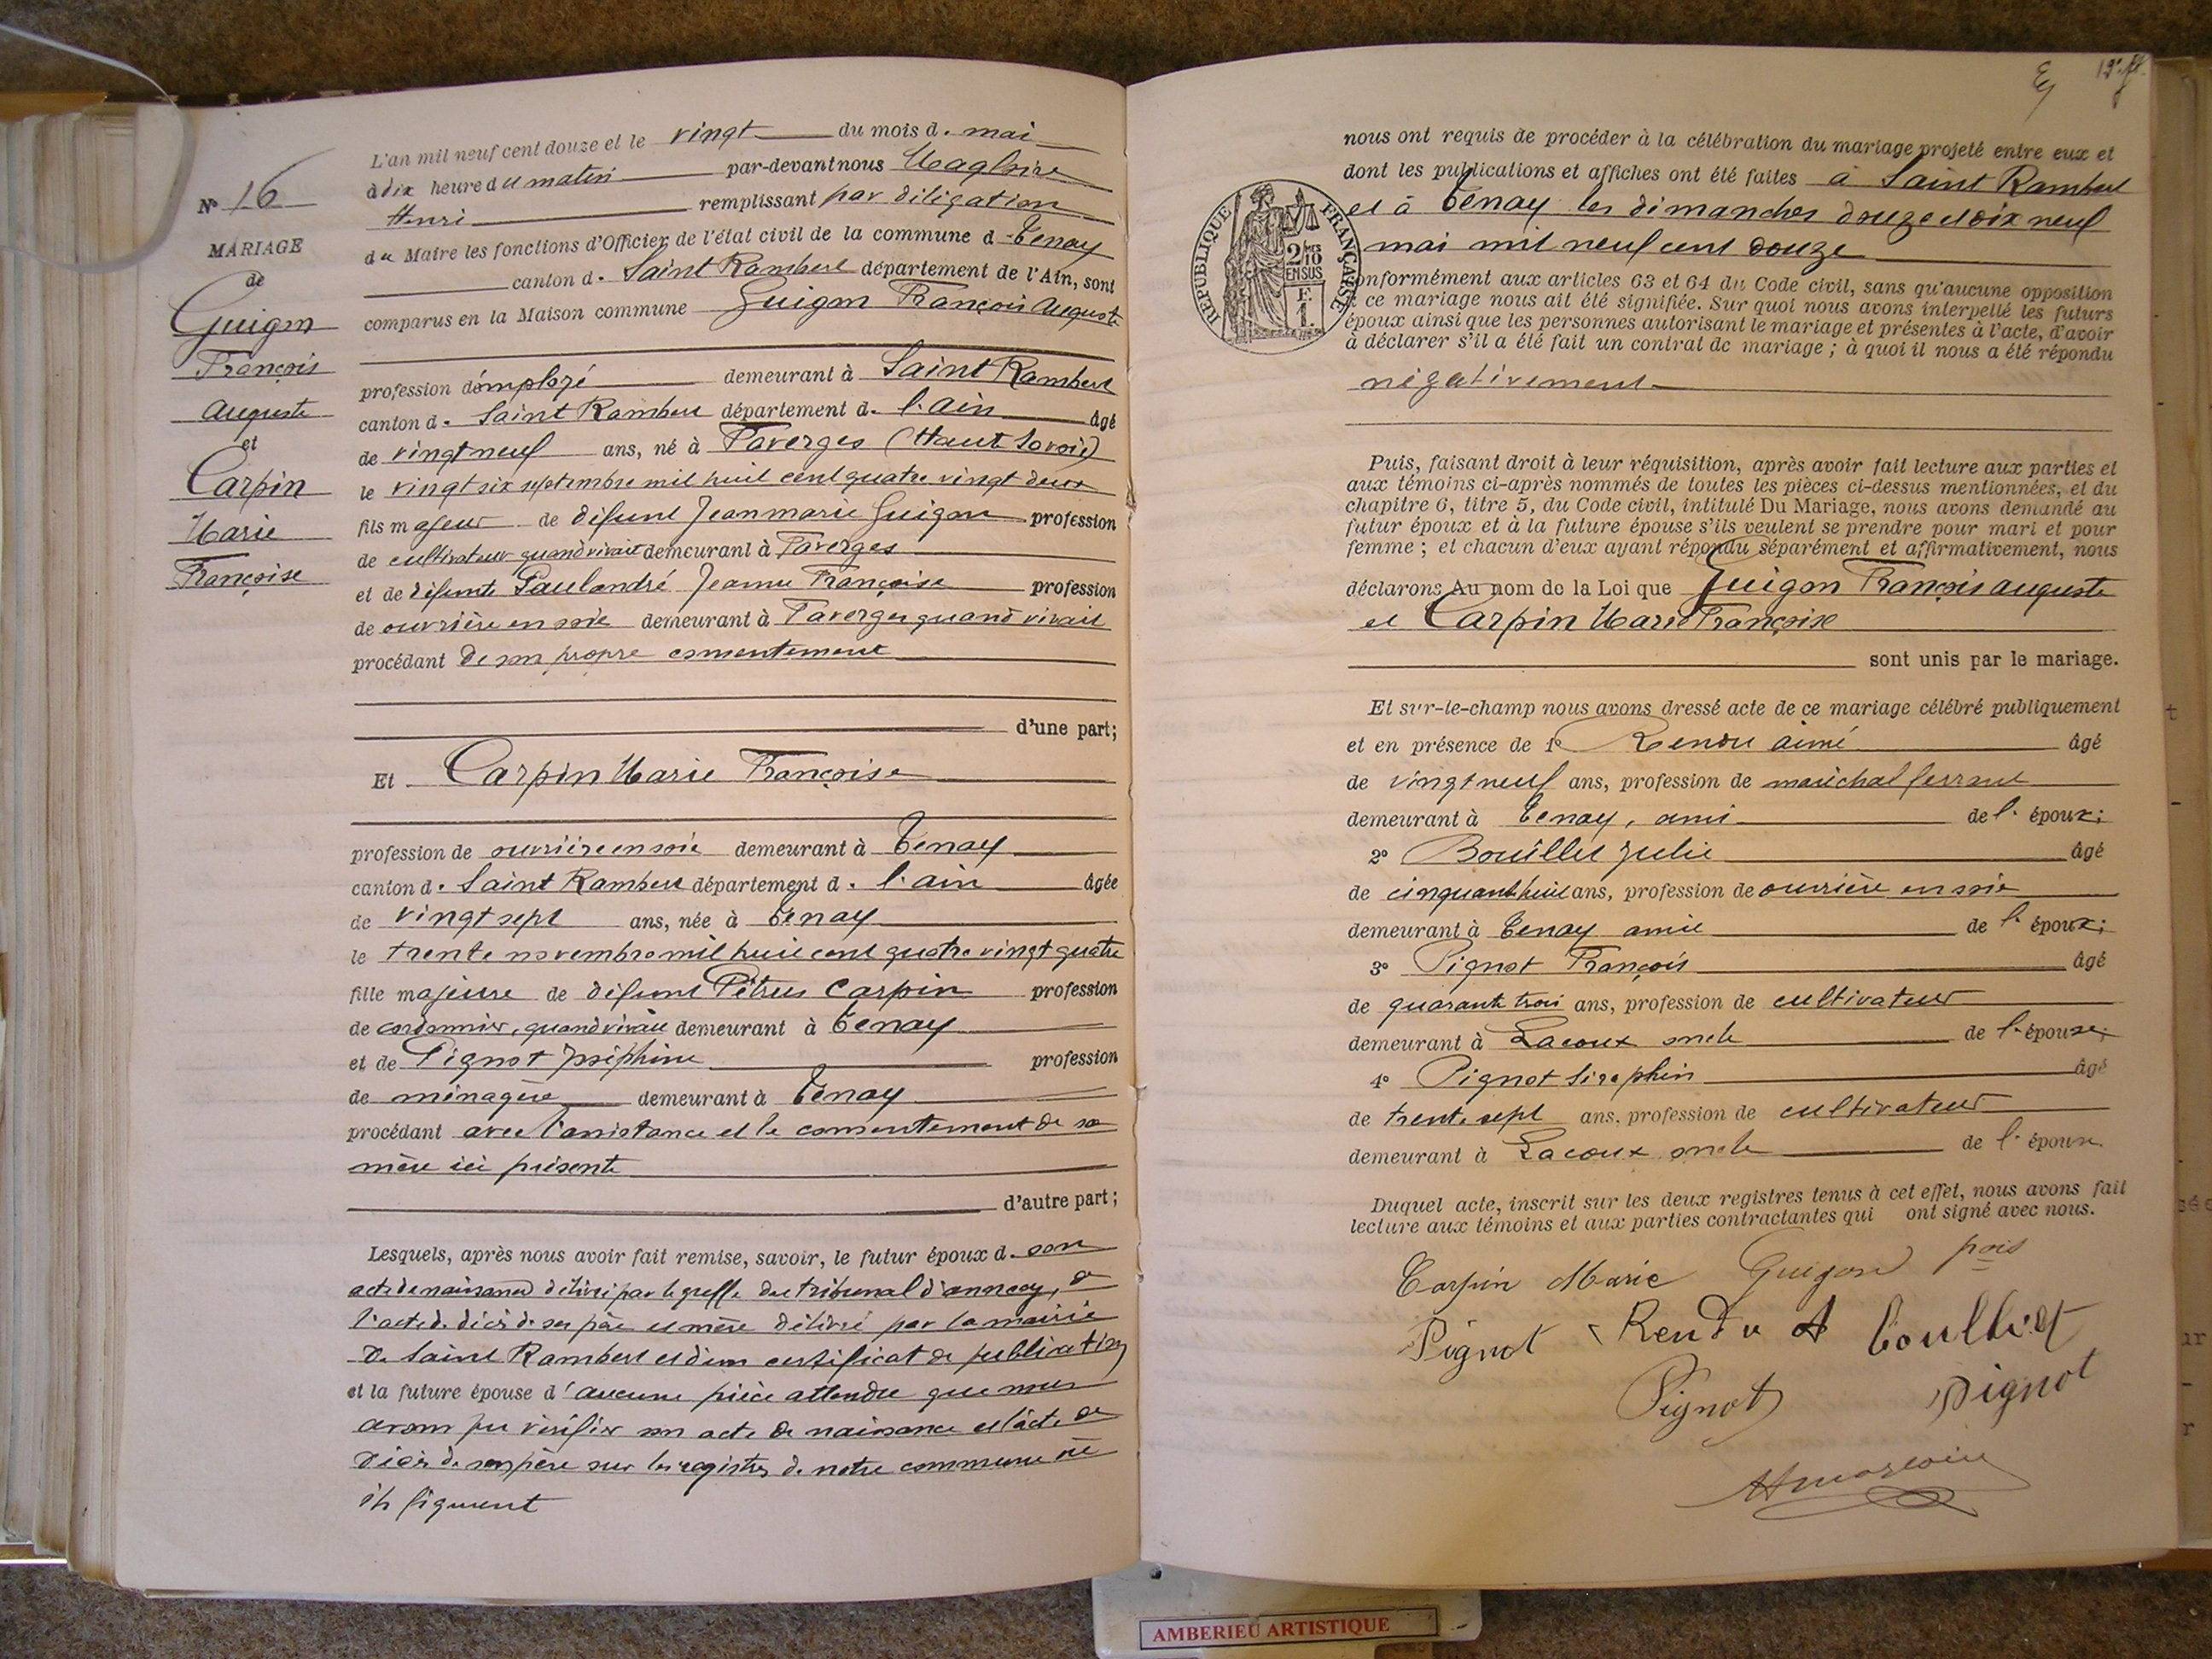 L'an mil neuf cent douze et le vingt du mois d. mai
à dix heure du matin par-devant nous Magloire
Henri remplissant par délégation
du Maire les fonctions d'Officier de l'état civil de la commune d Tenay
canton d. Saint Rambert département de l'Ain, sont
comparus en la Maison commune Guigon François Auguste
N° 16
MARIAGE
de
Guigon
François
Auguste
et
Carpin
Marie
Françoise
profession d'employé demeurant à Saint Rambert
canton d. Saint Rambert département d. l'ain âgé
de vingt neuf ans, né à Faverges (Haute Savoie)
le vingt six septembre mil huit cent quatre vingt deux
fils majeur de défunt Jean marie Guigon profession
de cultivateur quand vivait demeurant à Faverges
et de défunte Jeanne Françoise profession
de ouvrière en soie demeurant à Faverges quand vivait
procédant de son propre consentement
d'une part;
Et Carpin Marie Françoise
profession de ouvrière en soie demeurant à Tenay
canton d. Saint Rambert département d. l'ain âgée
de vingt sept ans, née à Tenay
le trente novembre mil huit cent quatre vingt quatre
fille majeure de défunt Pétrus Carpin profession
de cordonnier, quand vivait demeurant à Tenay
et de Pignot Joséphine profession
de ménagère demeurant à Tenay
procédant avec l'assistance et le consentement de sa
mère ici présente
d'autre part;
Lesquels, après nous avoir fait remise, savoir, le futur époux d. son
acte de naissance délivré par le greffe du tribunal d'annecy, de
l'acte de décès de ses père et mère délivré par la mairie
de Saint Rambert et d'un certificat de publication
et la future épouse d'aucune pièce attendu que nous
avons pu vérifier son acte de naissance et l'acte de
décès de son père sur les registres de notre commune où
ils figurent
19e
nous ont requis de procéder à la célébration du mariage projeté entre eux et
dont les publications et affiches ont été faites à Saint Rambert
et à Tenay les dimanches douze et dix neuf
mai mil neuf cent douze
RÉPUBLIQUE FRANÇAISE
2/10 EN SUS
F. 1.
conformément aux articles 63 et 64 du Code civil, sans qu'aucune opposition
à ce mariage nous ait été signifiée. Sur quoi nous avons interpellé les futurs
époux ainsi que les personnes autorisant le mariage et présentes à l'acte, d'avoir
à déclarer s'il a été fait un contrat de mariage ; à quoi il nous a été répondu
négativement
Puis, faisant droit à leur réquisition, après avoir fait lecture aux parties et
aux témoins ci-après nommés de toutes les pièces ci-dessus mentionnées, et du
chapitre 6, titre 5, du Code civil, intitulé Du Mariage, nous avons demandé au
futur époux et à la future épouse s'ils veulent se prendre pour mari et pour
femme ; et chacun d'eux ayant répondu séparément et affirmativement, nous
déclarons Au nom de la Loi que Guigon François auguste
et Carpin Marie Françoise
sont unis par le mariage.
Et sur-le-champ nous avons dressé acte de ce mariage célébré publiquement
et en présence de 1° Rendu aimé âgé
de vingt neuf ans, profession de maréchal ferrant
demeurant à Tenay, ami de l. époux;
2° Bouillet Julie âgé
de cinquante huit ans, profession de ouvrière en soie
demeurant à Tenay amie de l. époux;
3° Pignot François âgé
de quarante trois ans, profession de cultivateur
demeurant à Lacoux oncle de l. épouse;
4° Pignot Séraphin âgé
de trente sept ans, profession de cultivateur
demeurant à Lacoux oncle de l. épouse
Duquel acte, inscrit sur les deux registres tenus à cet effet, nous avons fait
lecture aux témoins et aux parties contractantes qui ont signé avec nous.
Carpin Marie Guigon fçois
Pignot Rendu A
Pignot Pignot
AMBERIEU ARTISTIQUE